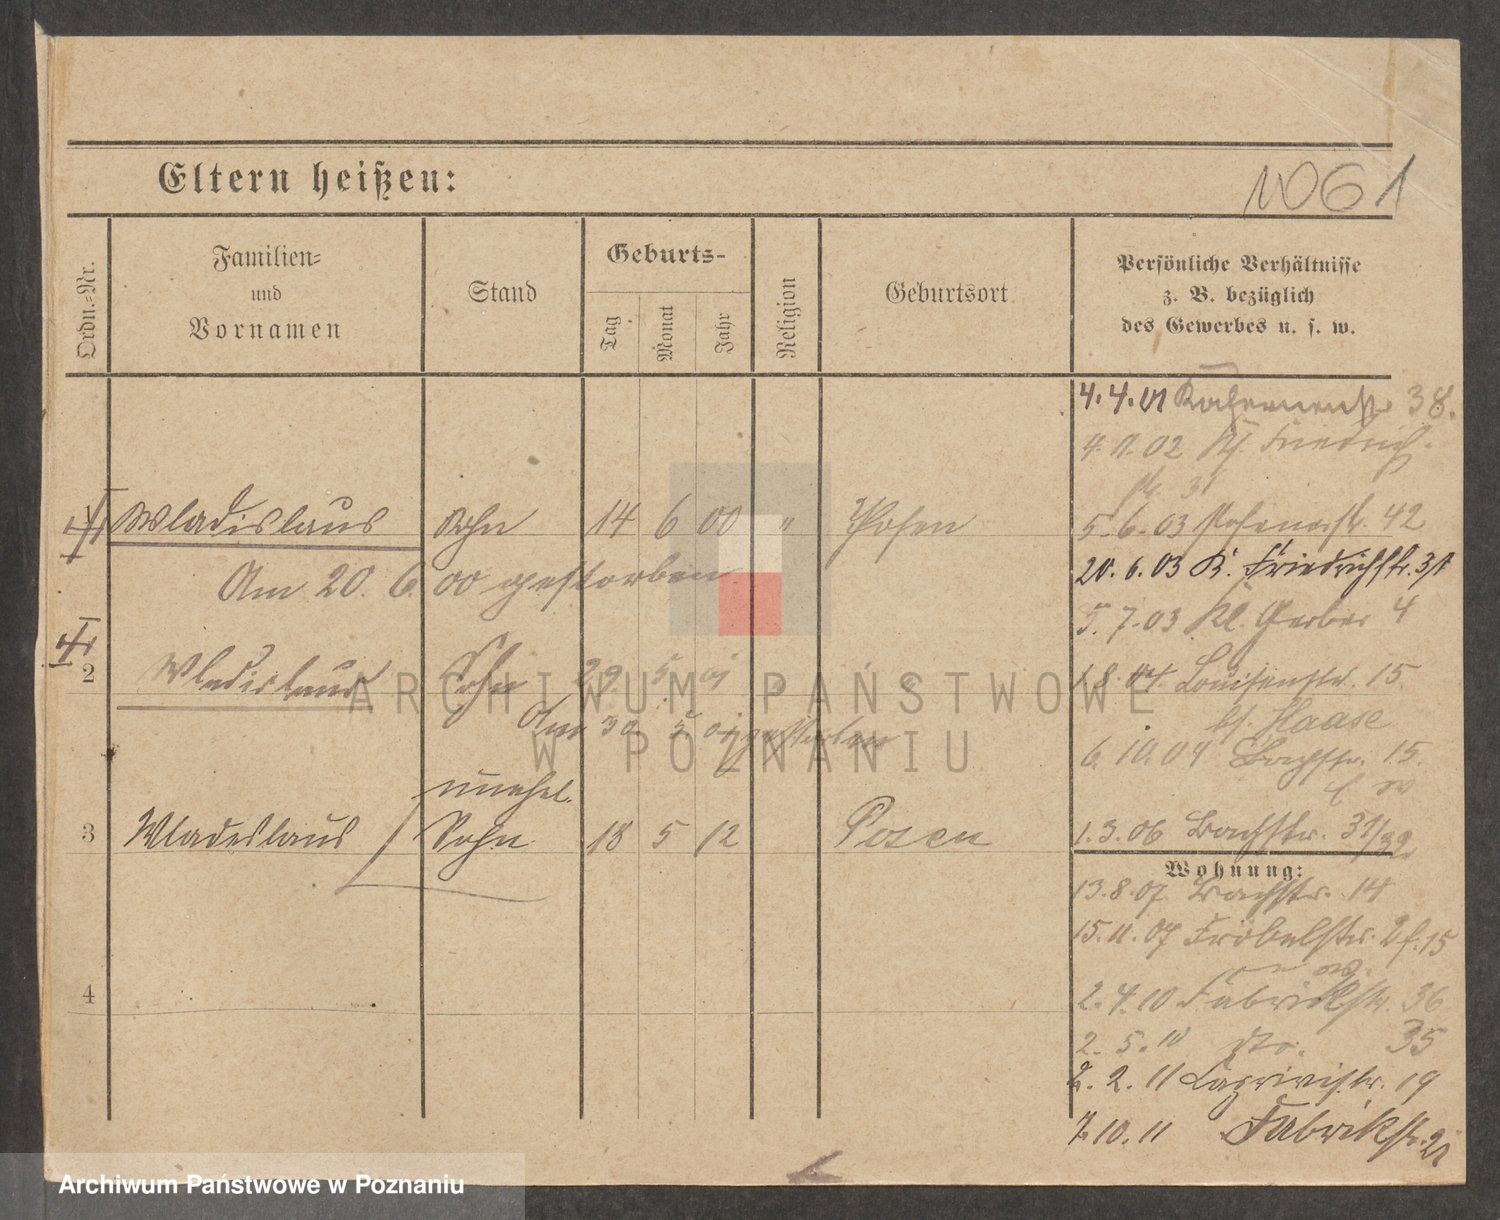 Eltern heißen:
1061
Ordn.=Nr.
Familien=
und
Vornamen
Stand
Geburts-
Tag
Monat
Jahr
Religion
Geburtsort
Persönliche Verhältnisse
z. B. bezüglich
des Gewerbes u. s. w.
4.4.01 38.
4.11.02 Kl. Friedrich-
str. 31
1 Wladislaus Sohn 14 6 00 " Posen
5.6.03 Posenerstr. 42
Am 20. 6. 00 gestorben
20.6.03 K. Friedrichstr. 31
5.7.03 Kl. Gerber 4
2 Wladislaus Sohn 29 5 01 "
1.8.04 Louisenstr. 15.
Am 30. 5. 01 gestorben
bf. Haase
6.10.04 Bachstr. 15.
unehel.
3 Wladeslaus Sohn 18 5 12 Posen
1.3.06 Bachstr. 31/32
Wohnung:
13.8.07 Bachstr. 14
15.11.07 Fröbelstr. 15
4
2.4.10 Fabrikstr. 36
2.5.10 dto. 35
2.2.11 Caprivistr. 19
7.10.11 Fabrikstr. 21
ARCHIWUM PAŃSTWOWE
W POZNANIU
Archiwum Państwowe w Poznaniu